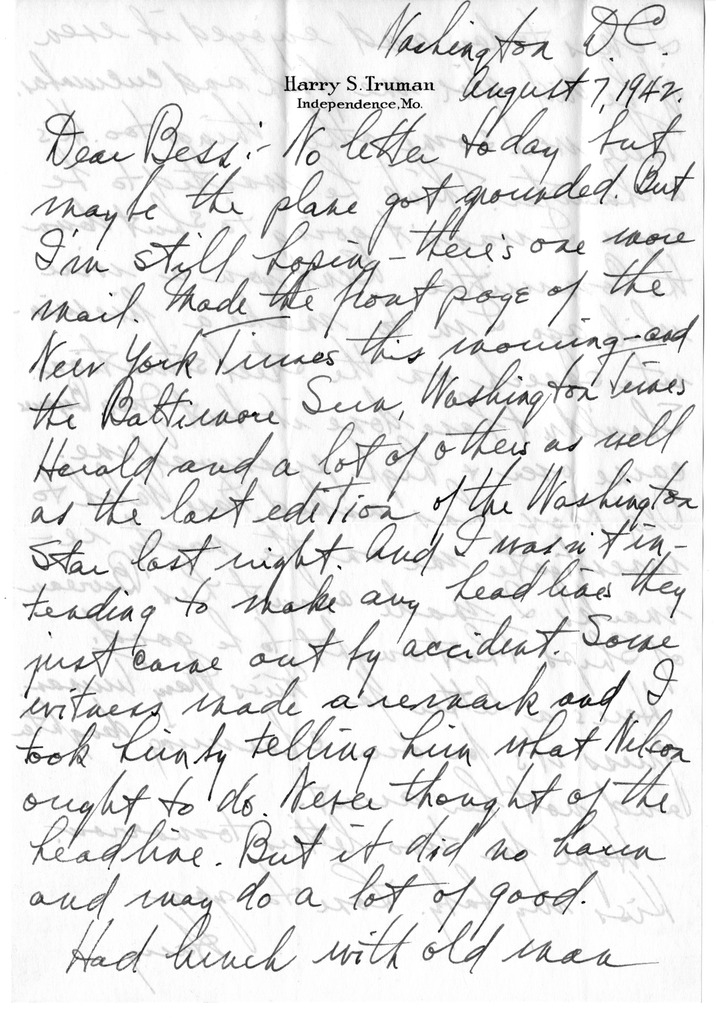 Washington D.C.
Harry S. Truman
Independence, Mo.
August 7, 1942.
Dear Bess:- No letter today but
maybe the plane got grounded. But
I'm still hoping - there's one more
mail. Made the front page of the
New York Times this morning - and
the Baltimore Sun, Washington Times
Herald and a lot of others as well
as the last edition of the Washington
Star last night. And I wasn't in-
tending to make any headlines they
just came out by accident. Some
witness made a remark and I
took him by telling him what Nelson
ought to do. Never thought of the
headline. But it did no harm
and may do a lot of good.
Had lunch with old man